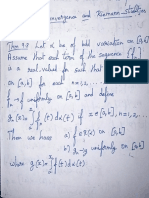 Convergence and Riemann-Stieltjes
Thm 9.8 Let α be of bdd variation on [a,b]
Assume that each term of the sequence
is a real-valued fⁿ such that
on [a,b] for each n=1,2,...
fₙ → f uniformly on [a,b] and define
gₙ(x) = ∫ fₙ(t) dα(t) if x∈[a,b], n=1,2,...
Then we have
a)
b) gₙ → g uniformly on [a,b]
where g(x) = ∫ f(t) dα(t)